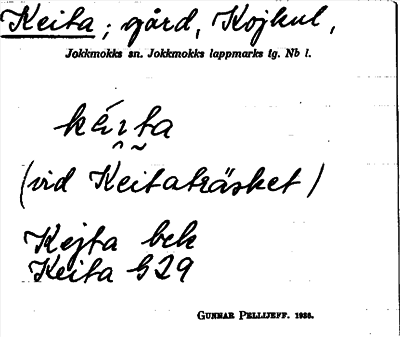 Keita; gård, Kojkul,
Jokkmokks sn. Jokkmokks lappmarks tg. Nb l.
(vid Keitaträsket)
Kejta bek
Keita G 29
GUNNAR PELLIJEFF. 1938.